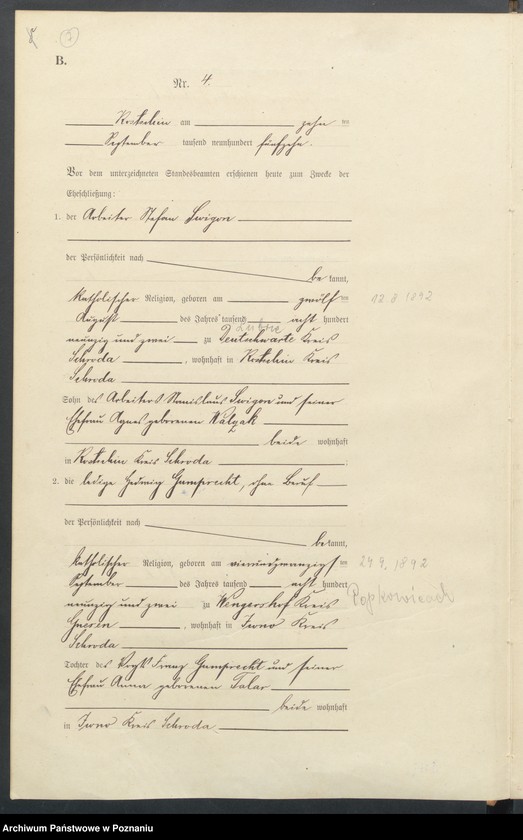 7
B.
Nr. 4.
Kostschin am zehn ten
September tausend neunhundert fünfzehn.
Vor dem unterzeichneten Standesbeamten erschienen heute zum Zwecke der
Eheschließung:
1. der Arbeiter Stefan Swigon
der Persönlichkeit nach
be kannt,
katholischer Religion, geboren am zwölf ten 12.8.1892
August des Jahres tausend acht hundert
neunzig und zwei zu Deutschwarte Kreis
Schroda, wohnhaft in Kostschin Kreis
Schroda
Sohn des Arbeiters Stanislaus Swigon und seiner
Ehefrau Agnes geborenen Walczak
beide wohnhaft
in Kostschin Kreis Schroda
2. die ledige Hedwig Gumprecht, ohne Beruf
der Persönlichkeit nach
be kannt,
katholischer Religion, geboren am vierundzwanzigsten 24.9.1892
September des Jahres tausend acht hundert
neunzig und zwei zu Wengershof Kreis Popkowicach
Gnesen, wohnhaft in Iwno Kreis
Schroda
Tochter des Vogt Franz Gumprecht und seiner
Ehefrau Anna geborenen Talar
beide wohnhaft
in Iwno Kreis Schroda
Archiwum Państwowe w Poznaniu